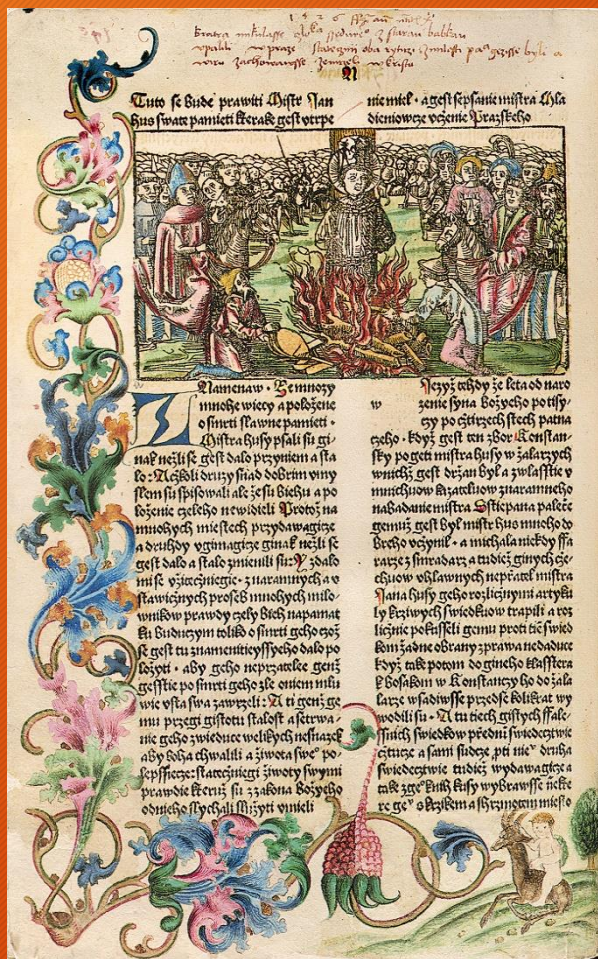 1526
bratra mikulasse
z starau babkau
upalili w praze statecznij oba rytirzi
zemrzeli w kristu
Tuto se bude prawiti Mistr Jan
Hus swate pamieti kterak gest utrpe
niemiel · a gest sepsanie mistra Mla
dieniowcze uczenie Prazskeho
Namenaw · Ze mnozy
mnohe wiecy a polozene
o smrti slawne pamieti ·
Mistra husy psali su gi
nak nezli se gest dalo przyniem a sta
lo: Aczkoli druzy snad dobrim umy
slem su spisowali ale ze su biehu a po
lozenie czeleho newidieli Protoz na
mnohych miestech przydawagicze
a druhdy ugimagicze ginak nezli se
gest dalo a stalo zmienili su: Y zdalo
mi se uziteczniegie · z naramnych a u
stawicznych proseb mnohych milo-
wnikow prawdy czely bieh napamat
ku buduczym toliko o smrti geho czoz
se gest tu znamenityessyeho dalo po
lozyti · aby geho neprzatelee genz
gesstie po smrti geho zle o niem mlu
wie usta swa zawrzeli: A ti genz ge
mu przegi gistotu stalost a setrwa-
nie geho zwieduce welikych nesnazek
aby boha chwalili a ziwota swe° po-
lepssiecze: stateczniegi ziwoty swymi
prawdie kteruz su z zakona Bozyeho
od nieho slychali sluzyti umieli
Jezyz tehdy ze leta od naro
w zenie syna Bozyeho po tisy-
czy po cztirzech stech patna
czeho · kdyz gest ten zbor Konstan-
sky po geti mistra husy w zalarzych
w nichz gest drzan byl a zwlasstie u
mnichuow kazateluow z naramneho
nabadanie mistra Sstiepana palecze
gemuz gest byl mistr hus mnoho do
breho uczynil · a michala niekdy ffa
rarze z smradarz a tudiez ginych cze-
chuow uhlawnych neprzatel mistra
Jana husy geho rozlicznimi artyku
ly krziwych swiedkuow trapili a roz
licznie pokusseli gemu proti tie swied
kom zadne obrany zprawa nedaduce
kdyz take potom do gineho klasstera
k bosakom w Konstanczy ho do zala
larze wsadiwsse przedse kolikrat wy
wodili su · A tu tiech gistych ffale-
ssnich swiedkow przedni swiedecztwie
cztucze a sami sudcze, pti nie° druha
swiedecztwie tudiez wydawagicze a
take z ge° knih kusy wybrawsse niekte
re ge° s krzikem a s hrzmotem miesto